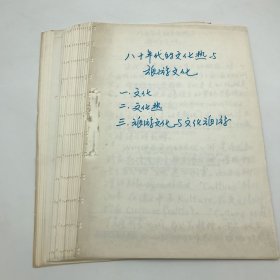 八十年代的文化热与
旅游文化
一.文化
二.文化热
三.旅游文化与文化旅游